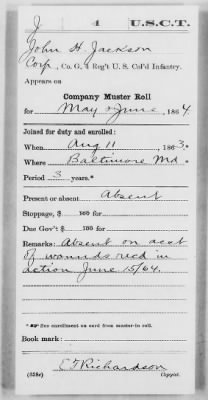 J | 4 | U.S.C.T.
John H. Jackson
Corp., Co. G, 4 Reg't U. S. Col'd Infantry.
Appears on
Company Muster Roll
for May & June, 1864.
Joined for duty and enrolled:
When Aug 11, 1863.*
Where Baltimore Md *
Period 3 years.*
Present or absent Absent
Stoppage, $ 100 for
Due Gov't $ 100 for
Remarks: Absent on acct
of wounds recd in
action June 15/64.
* See enrollment on card from muster-in roll.
Book mark:
E T Richardson
(358c) Copyist.